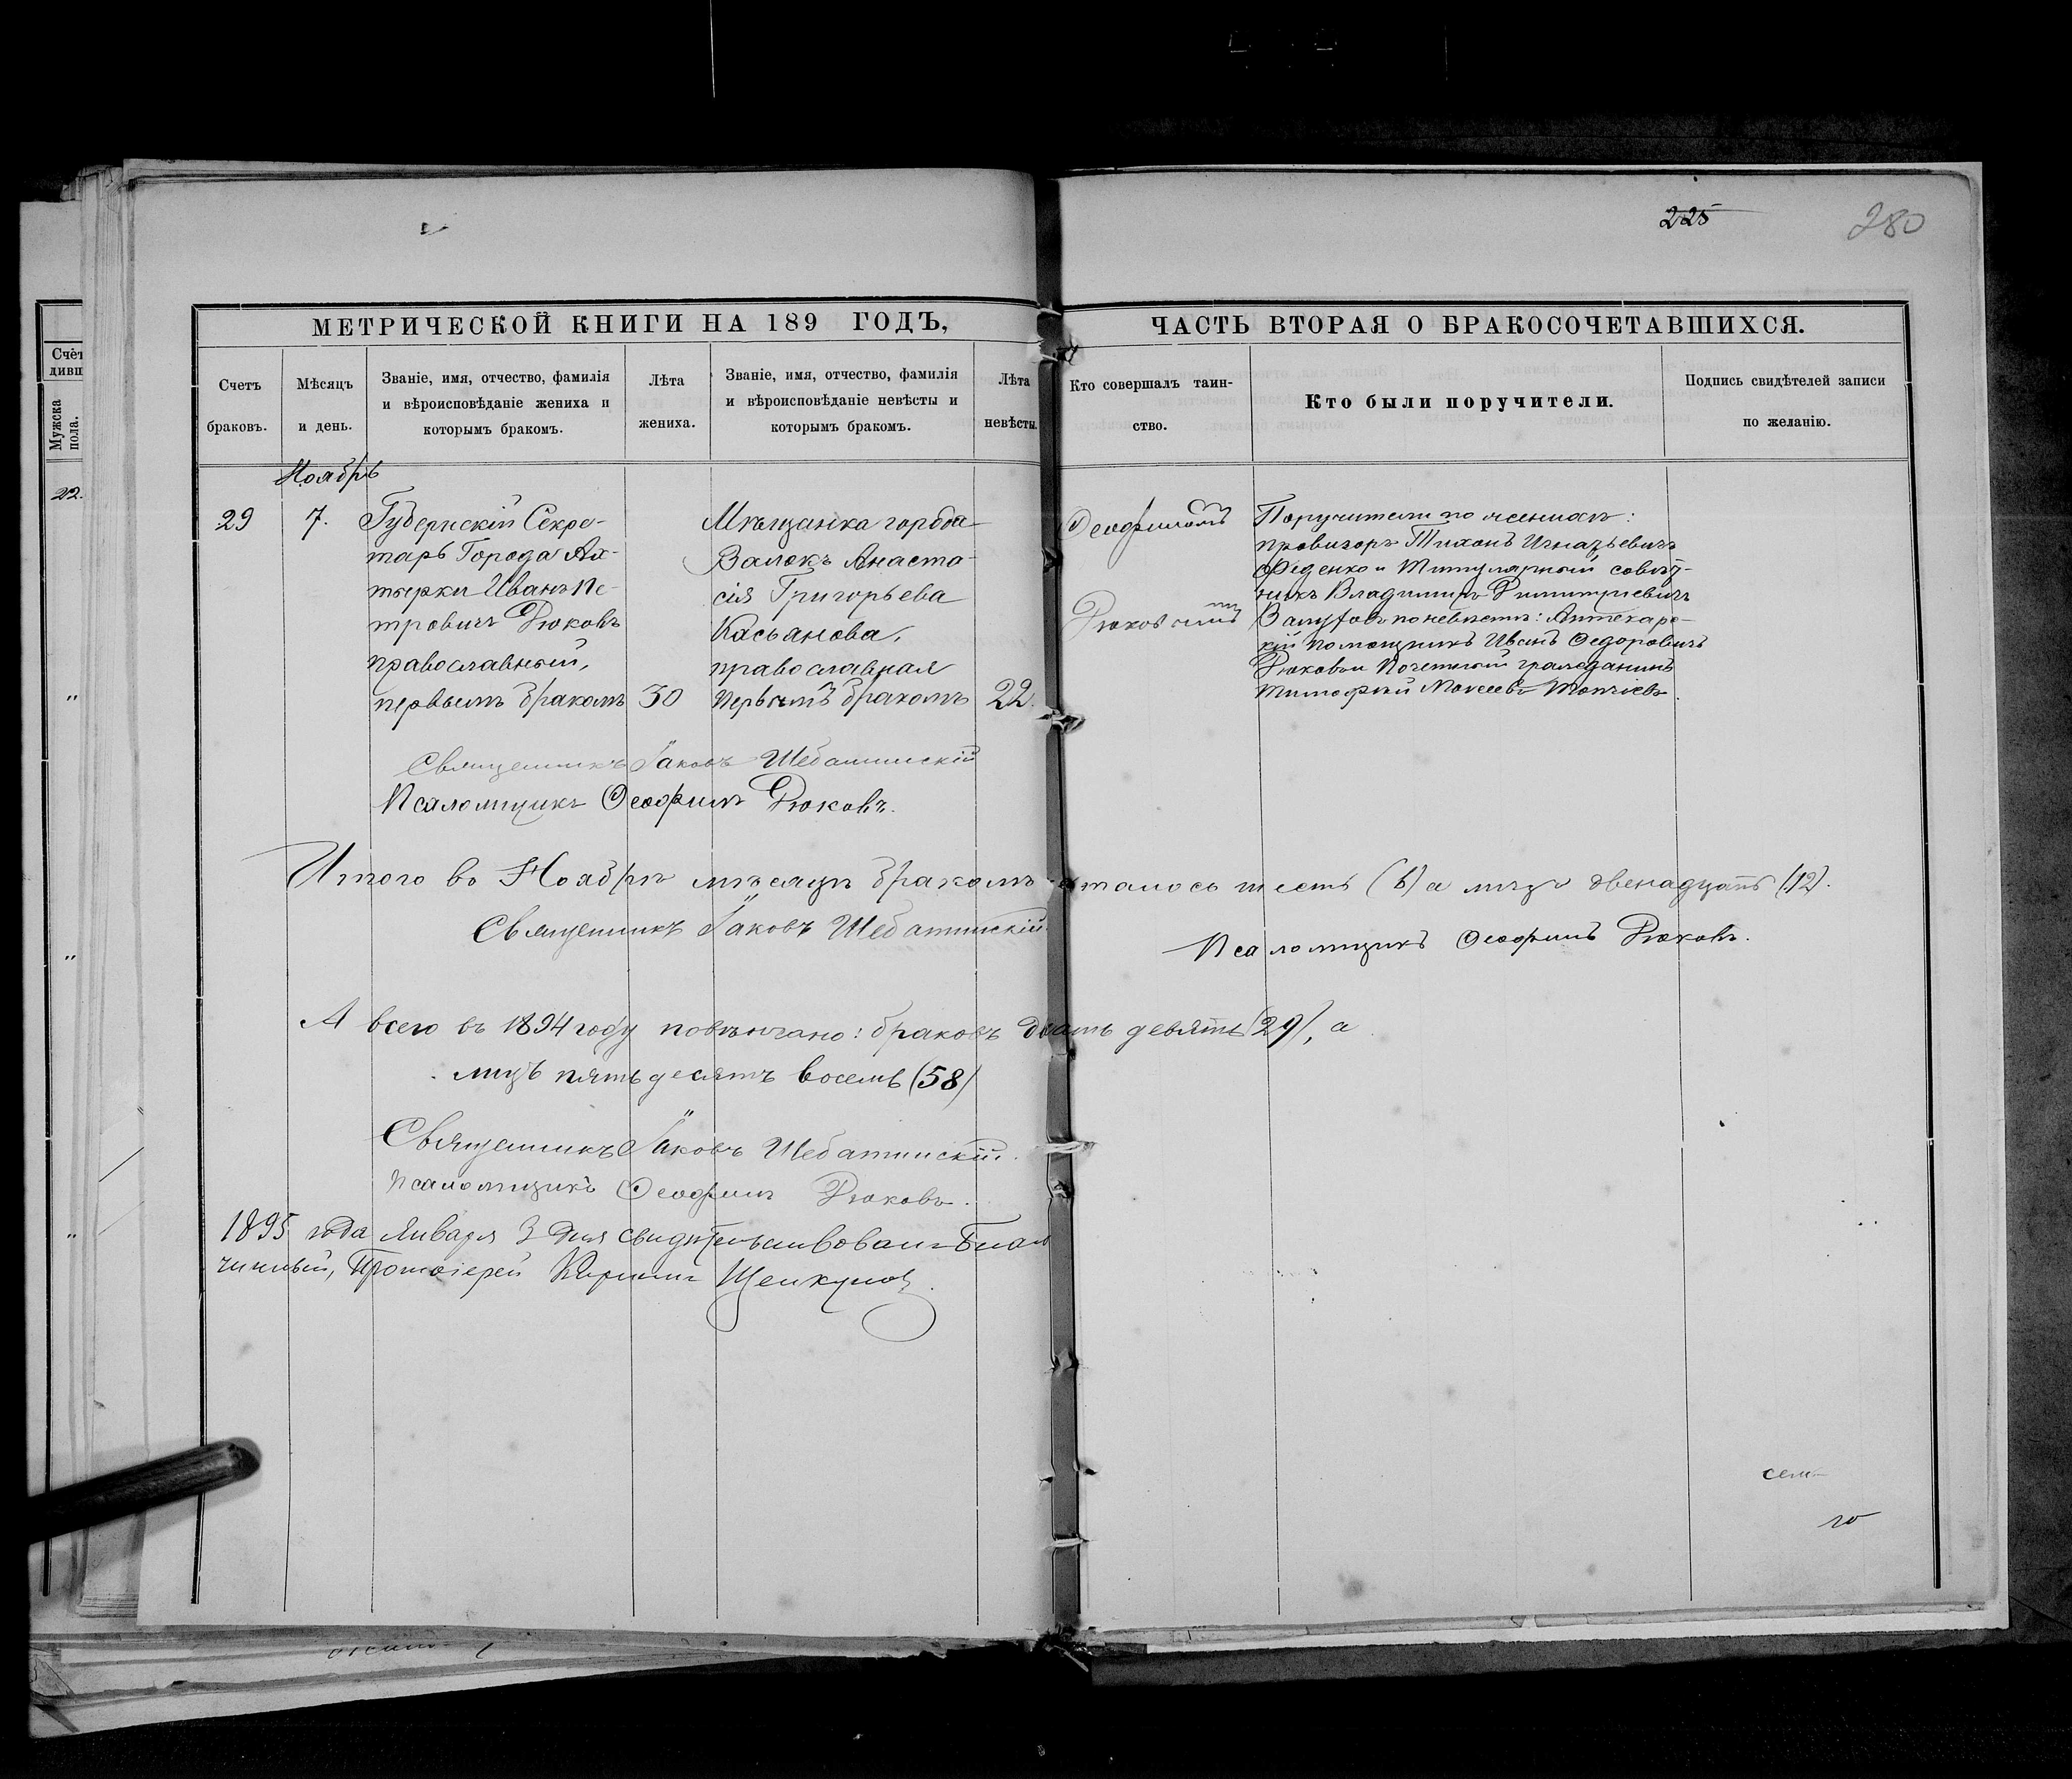 225
280
МЕТРИЧЕСКОЙ КНИГИ НА 189 ГОДЪ,
ЧАСТЬ ВТОРАЯ О БРАКОСОЧЕТАВШИХСЯ.
Счетъ браковъ.
Мѣсяцъ и день.
Званіе, имя, отчество, фамилія
и вѣроисповѣданіе жениха и
которымъ бракомъ.
Лѣта жениха.
Званіе, имя, отчество, фамилія
и вѣроисповѣданіе невѣсты и
которымъ бракомъ.
Лѣта невѣсты.
Кто совершалъ таин-
ство.
Кто были поручители.
Подпись свидѣтелей записи
по желанію.
Мужска
пола.
22.
Ноябрь
29
7.
Губернскій Секре-
тарь Города Ах-
тырки Иванъ Пе-
тровичъ Рюковъ
православный,
первымъ бракомъ
30
Мѣщанка города
Валокъ Анаста-
сія Григорьева
Касьянова,
православная
первымъ бракомъ
22.
Ѳеофиломъ
Рюковымъ
Поручители по женихѣ:
провизоръ Тихонъ Игнатьевичъ
Феденко и Титулярный совѣт-
никъ Владимиръ Димитріевичъ
по невѣстѣ: Аптекарс-
кій помощникъ Иванъ Ѳедоровичъ
Рюковъ и Почетный гражданинъ
Тимофей Моисеевъ Топчіевъ.
Священникъ Іаковъ Шебатинскій
Псаломщикъ Ѳеофилъ Рюковъ.
Итого въ Ноябрѣ мѣсяцѣ бракомъ шесть (6) а лицъ двенадцать (12).
Священникъ Іаковъ Шебатинскій
Псаломщикъ Ѳеофилъ Рюковъ.
А всего въ 1894 году повѣнчано: браковъ девять (29), а
лицъ пятьдесятъ восемь (58)
Священникъ Іаковъ Шебатинскій.
Псаломщикъ Ѳеофилъ Рюковъ.
1895 года Января 3 дня свидѣтельствовалъ Благо
чинный, Протоіерей Кириллъ Щелкуновъ.